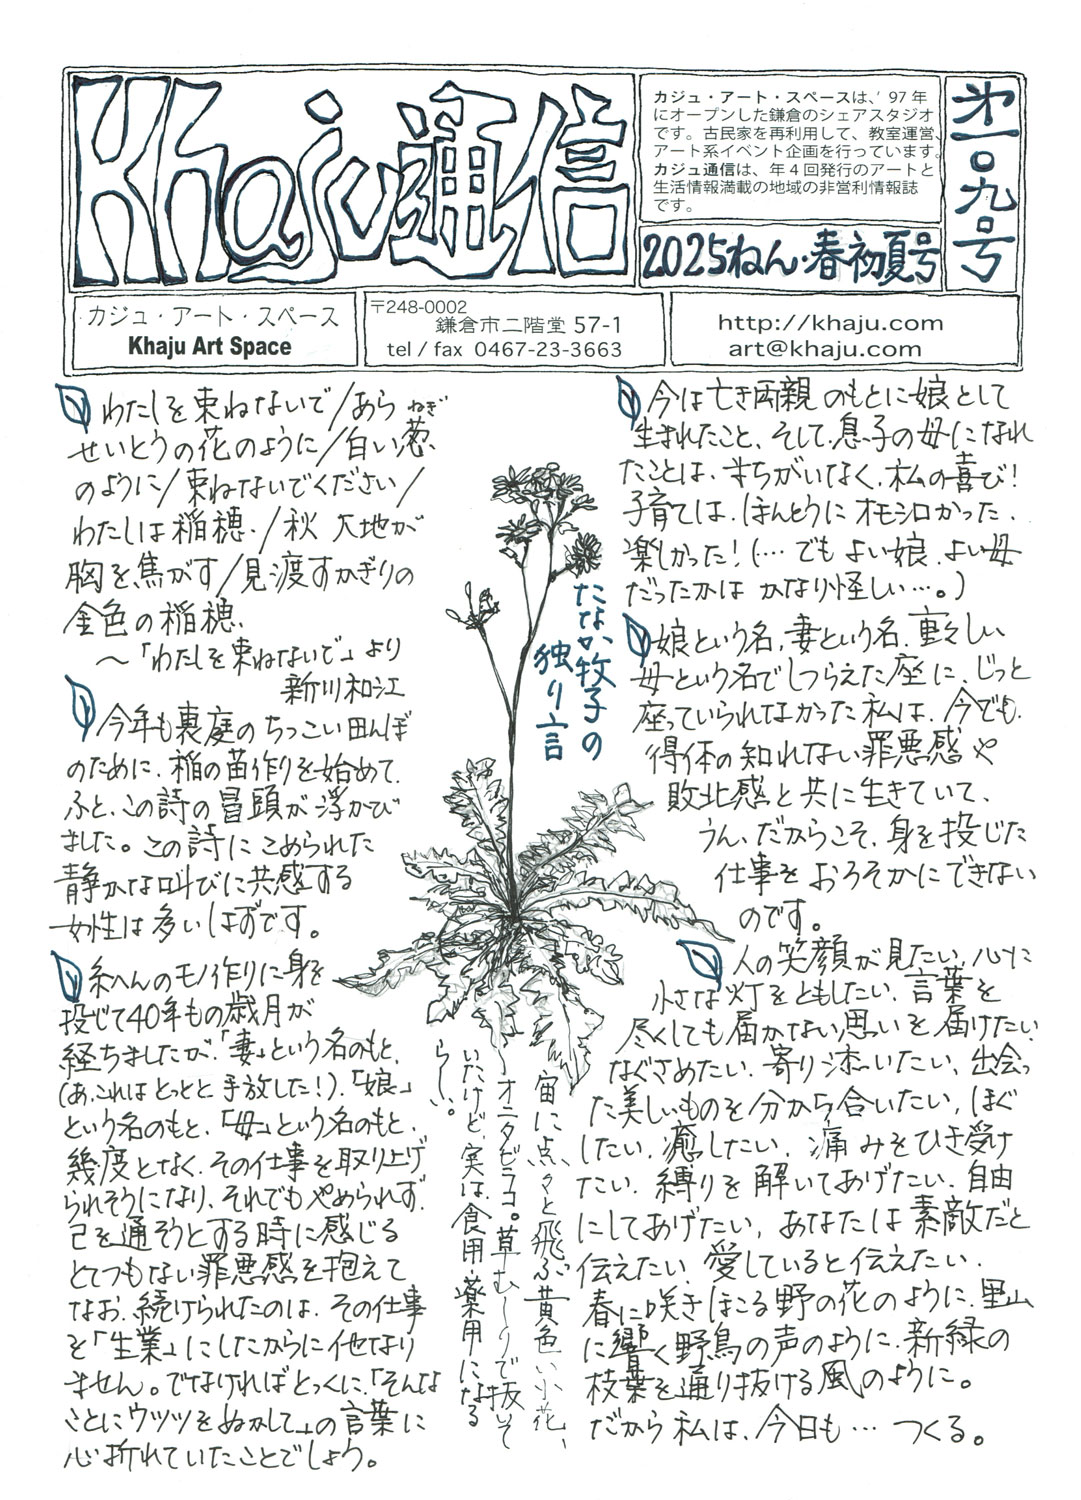 Khaju通信
カジュ・アート・スペースは、'97年
にオープンした鎌倉のシェアスタジオ
です。古民家を再利用して、教室運営、
アート系イベント企画を行っています。
カジュ通信は、年4回発行のアートと
生活情報満載の地域の非営利情報誌
です。
2025ねん・春初夏号
㐧一〇九号
カジュ・アート・スペース
Khaju Art Space
〒248-0002
鎌倉市二階堂 57-1
tel / fax 0467-23-3663
http://khaju.com
art@khaju.com
わたしを束ねないで/あら
せいとうの花のように/白い葱
ねぎ
のように/束ねないでください/
わたしは稲穂、/秋 大地が
胸を焦がす/見渡すかぎりの
金色の稲穂、
～「わたしを束ねないで」より
新川和江
今年も裏庭のちっこい田んぼ
のために、稲の苗作りを始めて、
ふと、この詩の冒頭が浮かび
ました。この詩にこめられた
静かな叫びに共感する
女性は多いはずです。
糸へんのモノ作りに身を
投じて40年もの歳月が
経ちましたが、「妻」という名のもと、
(あ、これはとっとと手放した!)、「娘」
という名のもと、「母」という名のもと、
幾度となく、その仕事を取り上げ
られそうになり、それでもやめられず、
己を通そうとする時に感じる
とてつもない罪悪感を抱えて
なお、続けられたのは、その仕事
を「生業」にしたからに他なり
ません。でなければとっくに、「そんな
ことにウツツをぬかして」の言葉に
心折れていたことでしょう。
たなか牧子の
独り言
宙に点々と飛ぶ黄色い小花、
～オニタビラコ。草むしりで抜いて
いたけど、実は、食用・薬用になる
らしい。
今は亡き両親のもとに娘として
生まれたこと、そして、息子の母になれ
たことは、まちがいなく、私の喜び!
子育ては、ほんとうにオモシロかった、
楽しかった!(…でもよい娘、よい母
だったかは かなり怪しい…。)
娘という名、妻という名、重々しい
母という名でしつらえた座に、じっと
座っていられなかった私は、今でも、
得体の知れない罪悪感や
敗北感と共に生きていて、
うん、だからこそ、身を投じた
仕事をおろそかにできない
のです。
人の笑顔が見たい、心に
小さな灯をともしたい、言葉を
尽くしても届かない思いを届けたい、
なぐさめたい、寄り添いたい、出会っ
た美しいものを分かち合いたい、ほぐ
したい、癒したい、痛みをひき受け
たい、縛りを解いてあげたい、自由
にしてあげたい、あなたは素敵だと
伝えたい、愛していると伝えたい、
春に咲きほこる野の花のように、里山
に響く野鳥の声のように、新緑の
枝葉を通り抜ける風のように。
だから私は、今日も… つくる。